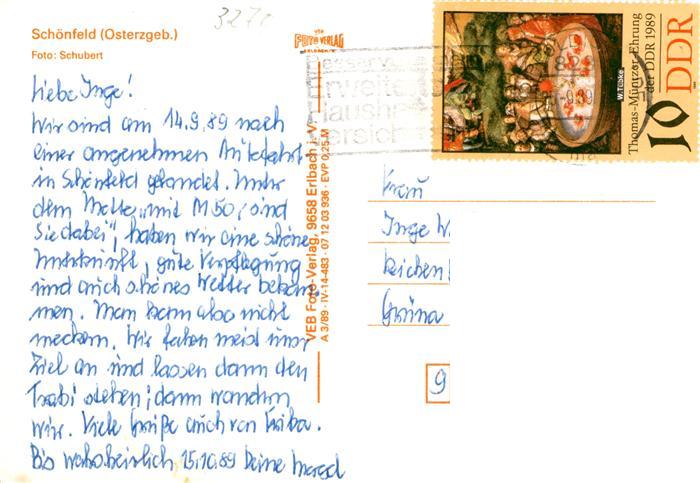 3270
Schönfeld (Osterzgeb.)
Foto: Schubert
FOTO VERLAG
ERLBACH
Liebe Inge!
Wir sind am 14.9.89 nach
einer angenehmen Autofahrt
in Schönfeld gelandet. Unter
dem Motto „mit M 50,- sind
Sie dabei", haben wir eine schöne
Unterkunft, gute Verpflegung
und auch schönes Wetter bekom
men. Man kann also nicht
meckern. Wir fahren meist unser
Ziel an und lassen dann den
Trabi stehen; dann wandern
wir. Viele Grüße auch von
Bis wahrscheinlich 15.10.89 Deine
VEB Foto-Verlag, 9658 Erlbach i. V.
A 3/89 · IV-14-483 · 07 12 03 936 · EVP 0,25 M
Erweiterte
Haushalt
Frau
Inge W.
Reichen
Grüna
9
W. Tübke
Thomas-Müntzer-Ehrung
der DDR 1989
10 DDR